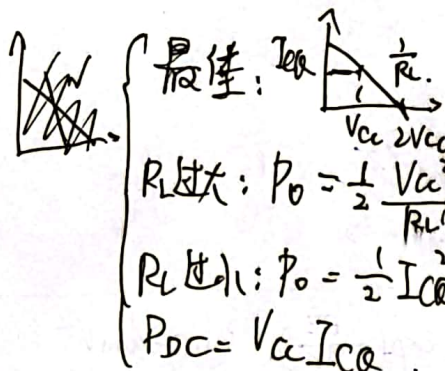 最佳: ICQ 1/RL.
VCC 2VCC
RL过大: P0 = 1/2 VCC²/RL'
RL过小: P0 = 1/2 ICQ²
PDC = VCC ICQ.